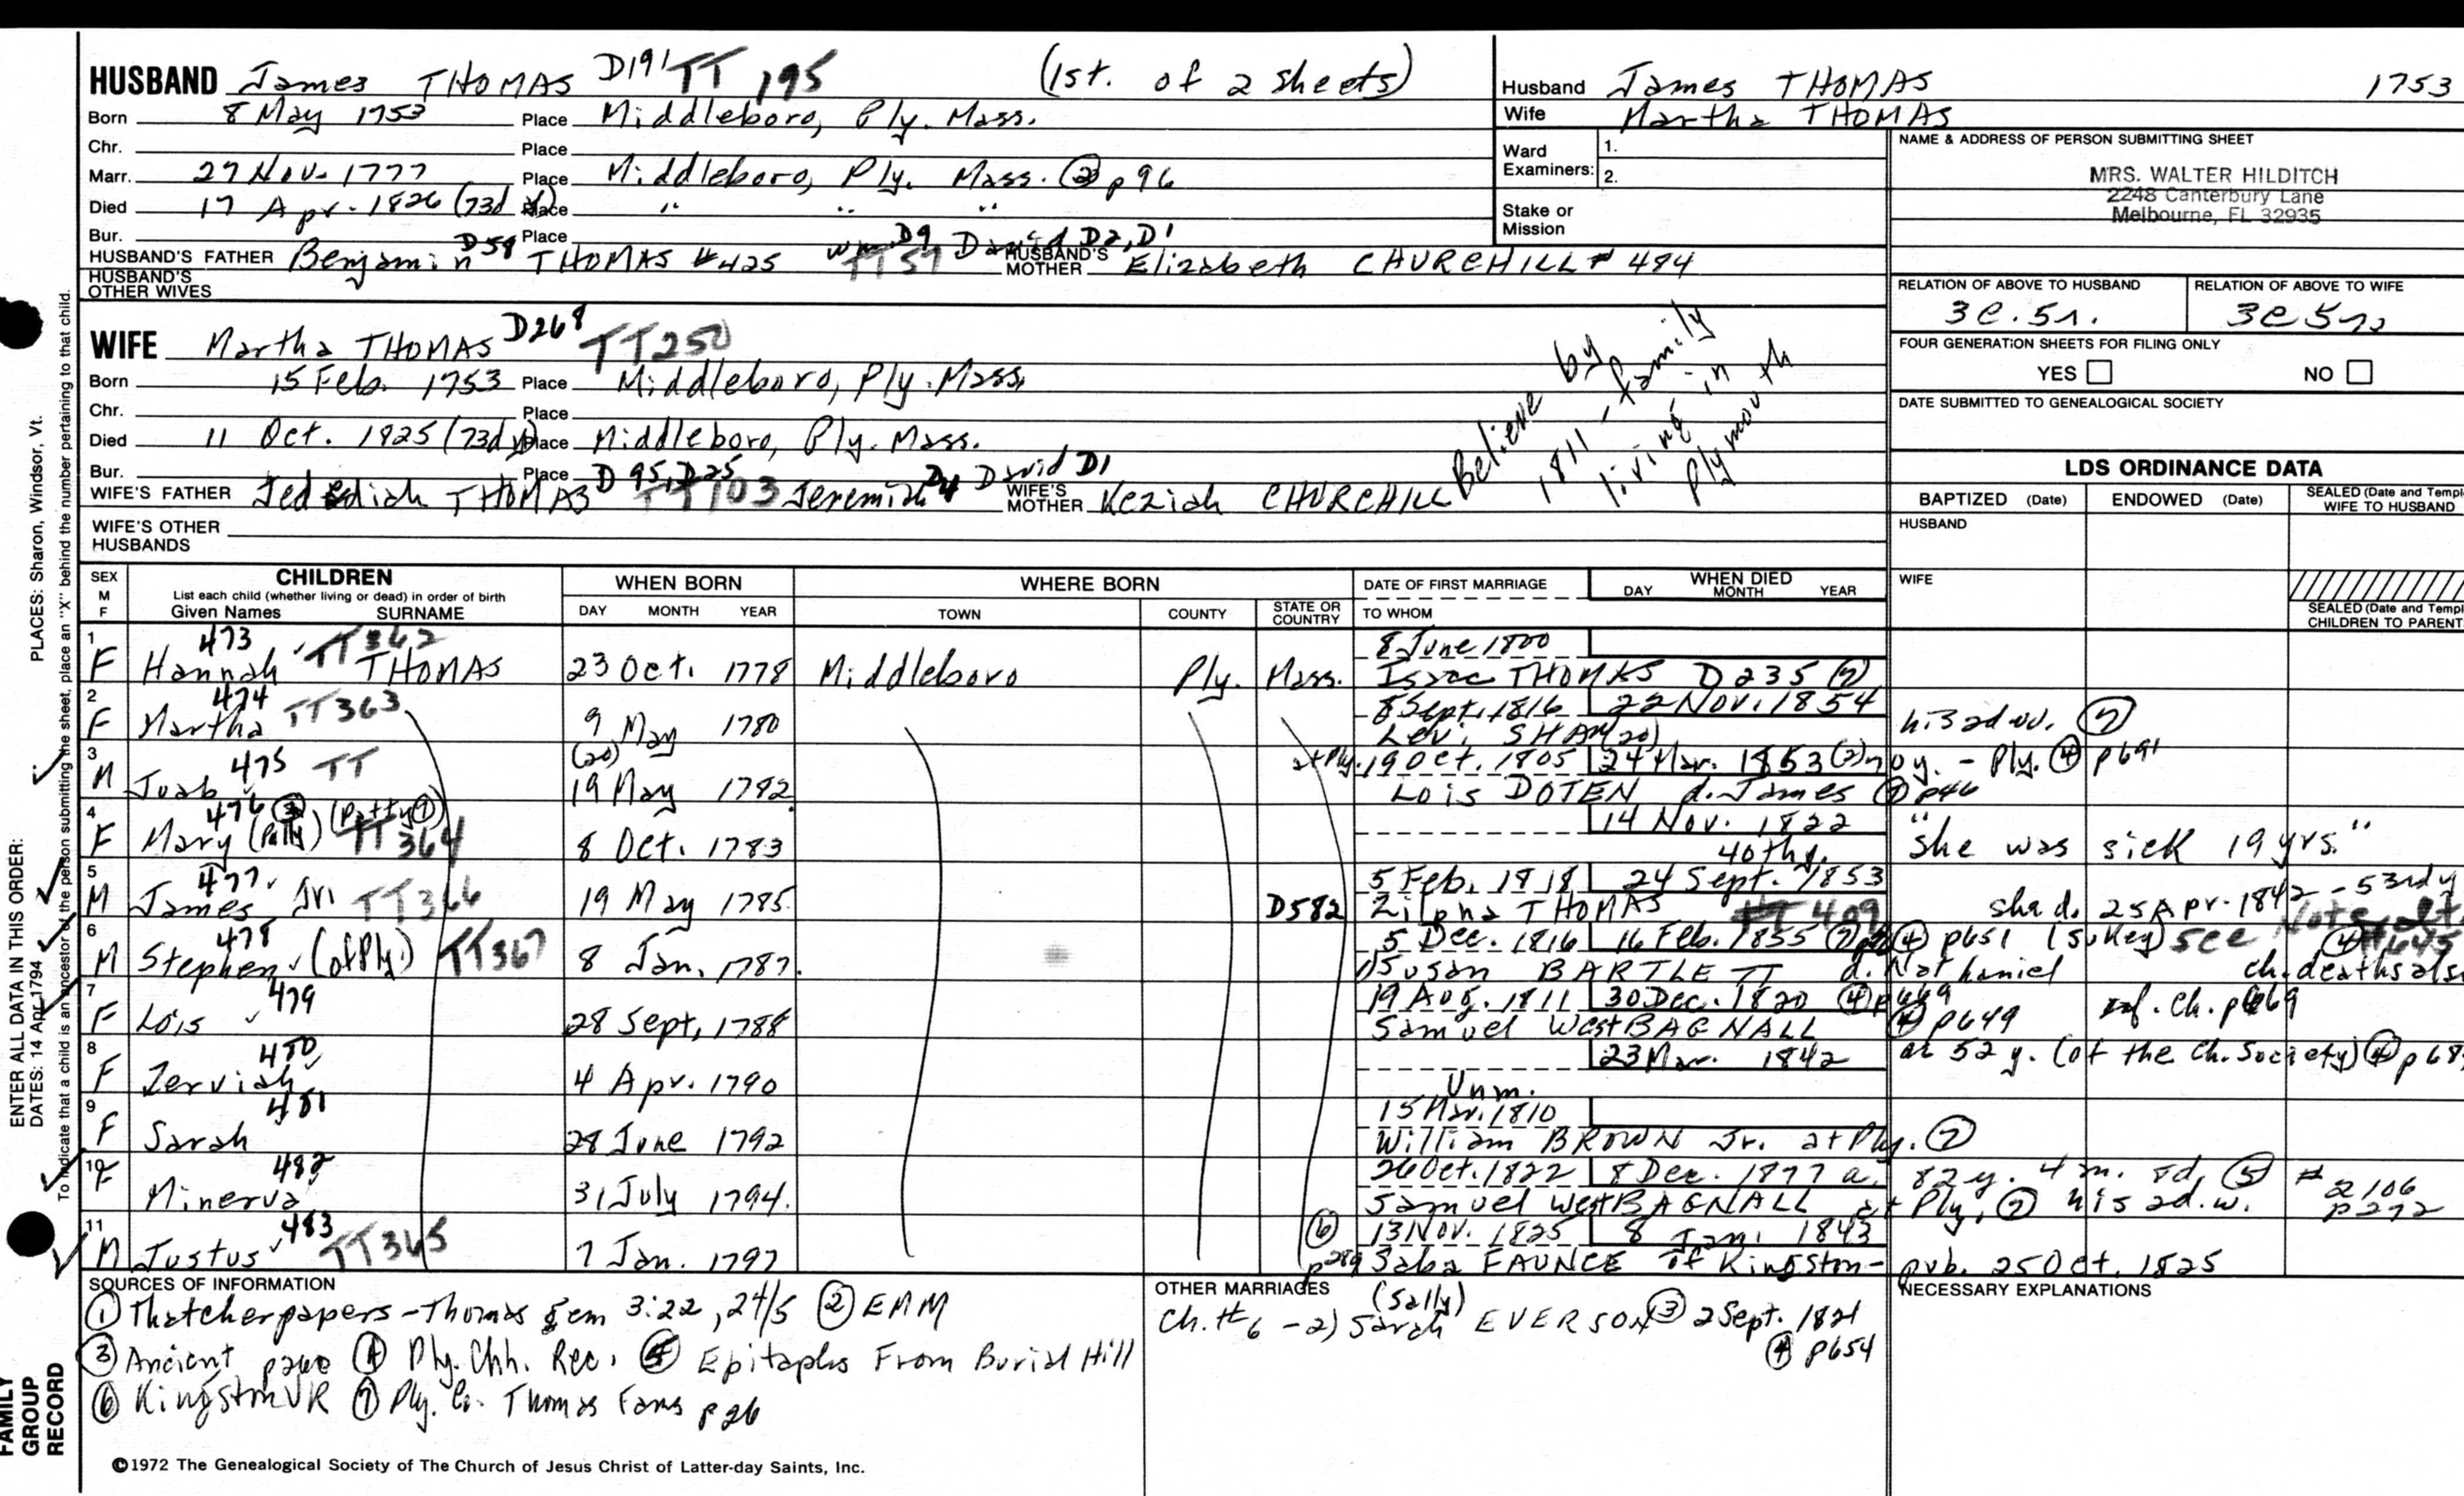 HUSBAND James THOMAS D191 TT 195 (1st. of 2 sheets)
Born 8 May 1753 Place Middleboro, Ply. Mass.
Chr. Place
Marr. 27 Nov. 1777 Place Middleboro, Ply. Mass. ② p 96
Died 17 Apr. 1826 (73d y) Place " " "
Bur. Place
HUSBAND'S FATHER Benjamin D58 THOMAS #425 TT57 wm D9 David D2, D1 HUSBAND'S MOTHER Elizabeth CHURCHILL # 484
HUSBAND'S OTHER WIVES
Husband James THOMAS 1753
Wife Martha THOMAS
Ward Examiners: 1.
2.
Stake or Mission
NAME & ADDRESS OF PERSON SUBMITTING SHEET
MRS. WALTER HILDITCH
2248 Canterbury Lane
Melbourne, FL 32935
RELATION OF ABOVE TO HUSBAND
RELATION OF ABOVE TO WIFE
FOUR GENERATION SHEETS FOR FILING ONLY
YES NO
DATE SUBMITTED TO GENEALOGICAL SOCIETY
WIFE Martha THOMAS D268 TT250
Born 15 Feb. 1753 Place Middleboro, Ply. Mass.
Chr. Place
Died 11 Oct. 1825 (73d y) Place Middleboro, Ply. Mass.
Bur. Place
WIFE'S FATHER Jedediah THOMAS D 95, D25 TT103 Jeremiah D4 David D1 WIFE'S MOTHER Keziah CHURCHILL
WIFE'S OTHER HUSBANDS
Believe by
1811, family
living in
Plymouth
LDS ORDINANCE DATA
BAPTIZED (Date) ENDOWED (Date) SEALED (Date and Templ
WIFE TO HUSBAND
HUSBAND
WIFE
SEALED (Date and Templ
CHILDREN TO PARENT
SEX M F
CHILDREN
List each child (whether living or dead) in order of birth
Given Names SURNAME
WHEN BORN
DAY MONTH YEAR
WHERE BORN
TOWN COUNTY STATE OR COUNTRY
DATE OF FIRST MARRIAGE
TO WHOM
WHEN DIED
DAY MONTH YEAR
1 F 473 Hannah TT362 THOMAS 23 Oct. 1778 Middleboro Ply. Mass. 8 June 1800
Isaac THOMAS D235 ⑦
2 F 474 Martha TT363 9 May 1780 8 Sept. 1816 22 Nov. 1854
Levi SHAW his 2d w. ⑦
3 M 475 Joab TT (20) 19 May 1782 at Ply. 19 Oct. 1805 24 Mar. 1853 - Ply. ④ p691
Lois DOTEN d. James ⑦ p46
4 F 476 ③ Mary (Polly) (Patty①) TT364 8 Oct. 1783 14 Nov. 1822
40thy. "she was sick 19 yrs."
5 M 477 James Jr. TT366 19 May 1785 D582 5 Feb. 1818 24 Sept. 1853
Zilpha THOMAS TT409 she d. 25 Apr. 1842 - 53rd y
6 M 478 Stephen (of Ply) TT367 8 Jan. 1787 5 Dec. 1816 16 Feb. 1855 ④ p651 (Sukey) See
1) Susan BARTLETT d. Nathaniel ch. deaths als
7 F 479 Lois 28 Sept. 1788 19 Aug. 1811 30 Dec. 1820 ④ p669
Samuel West BAGNALL ④ p649 inf. ch. p669
8 F 480 Zerviah 4 Apr. 1790 23 Mar. 1842 ae 52 y. (of the Ch. Society) ④ p68
Unm.
9 F 481 Sarah 28 June 1792 15 Mar. 1810
William BROWN Jr. at Ply. ⑦
10 F 482 Minerva 31 July 1794. 26 Oct. 1822 8 Dec. 1877 a. 82 y. 4 m. 8d. ⑤ # 2106 p272
Samuel West BAGNALL at Ply. ⑦ his 2d. w.
11 M 483 Justus TT365 7 Jan. 1797 ⑥ p289 13 Nov. 1825 8 Jan. 1843
Saba FAUNCE of Kingston - pub. 25 Oct. 1825
SOURCES OF INFORMATION
① Thatcher papers - Thomas gen 3:22, 24/5 ② EMM
③ Ancient page ④ Ply. Chh. Rec. ⑤ Epitaphs From Burial Hill
⑥ Kingston VR ⑦ Ply. Co. Thomas Fams p 26
OTHER MARRIAGES
Ch. #6 - 2) Sarah (Sally) EVERSON ③ 2 Sept. 1821
④ p654
NECESSARY EXPLANATIONS
©1972 The Genealogical Society of The Church of Jesus Christ of Latter-day Saints, Inc.
ENTER ALL DATA IN THIS ORDER:
DATES: 14 Apr 1794 PLACES: Sharon, Windsor, Vt.
To indicate that a child is an ancestor of the person submitting the sheet, place an "X" behind the number pertaining to that child.
FAMILY
GROUP
RECORD